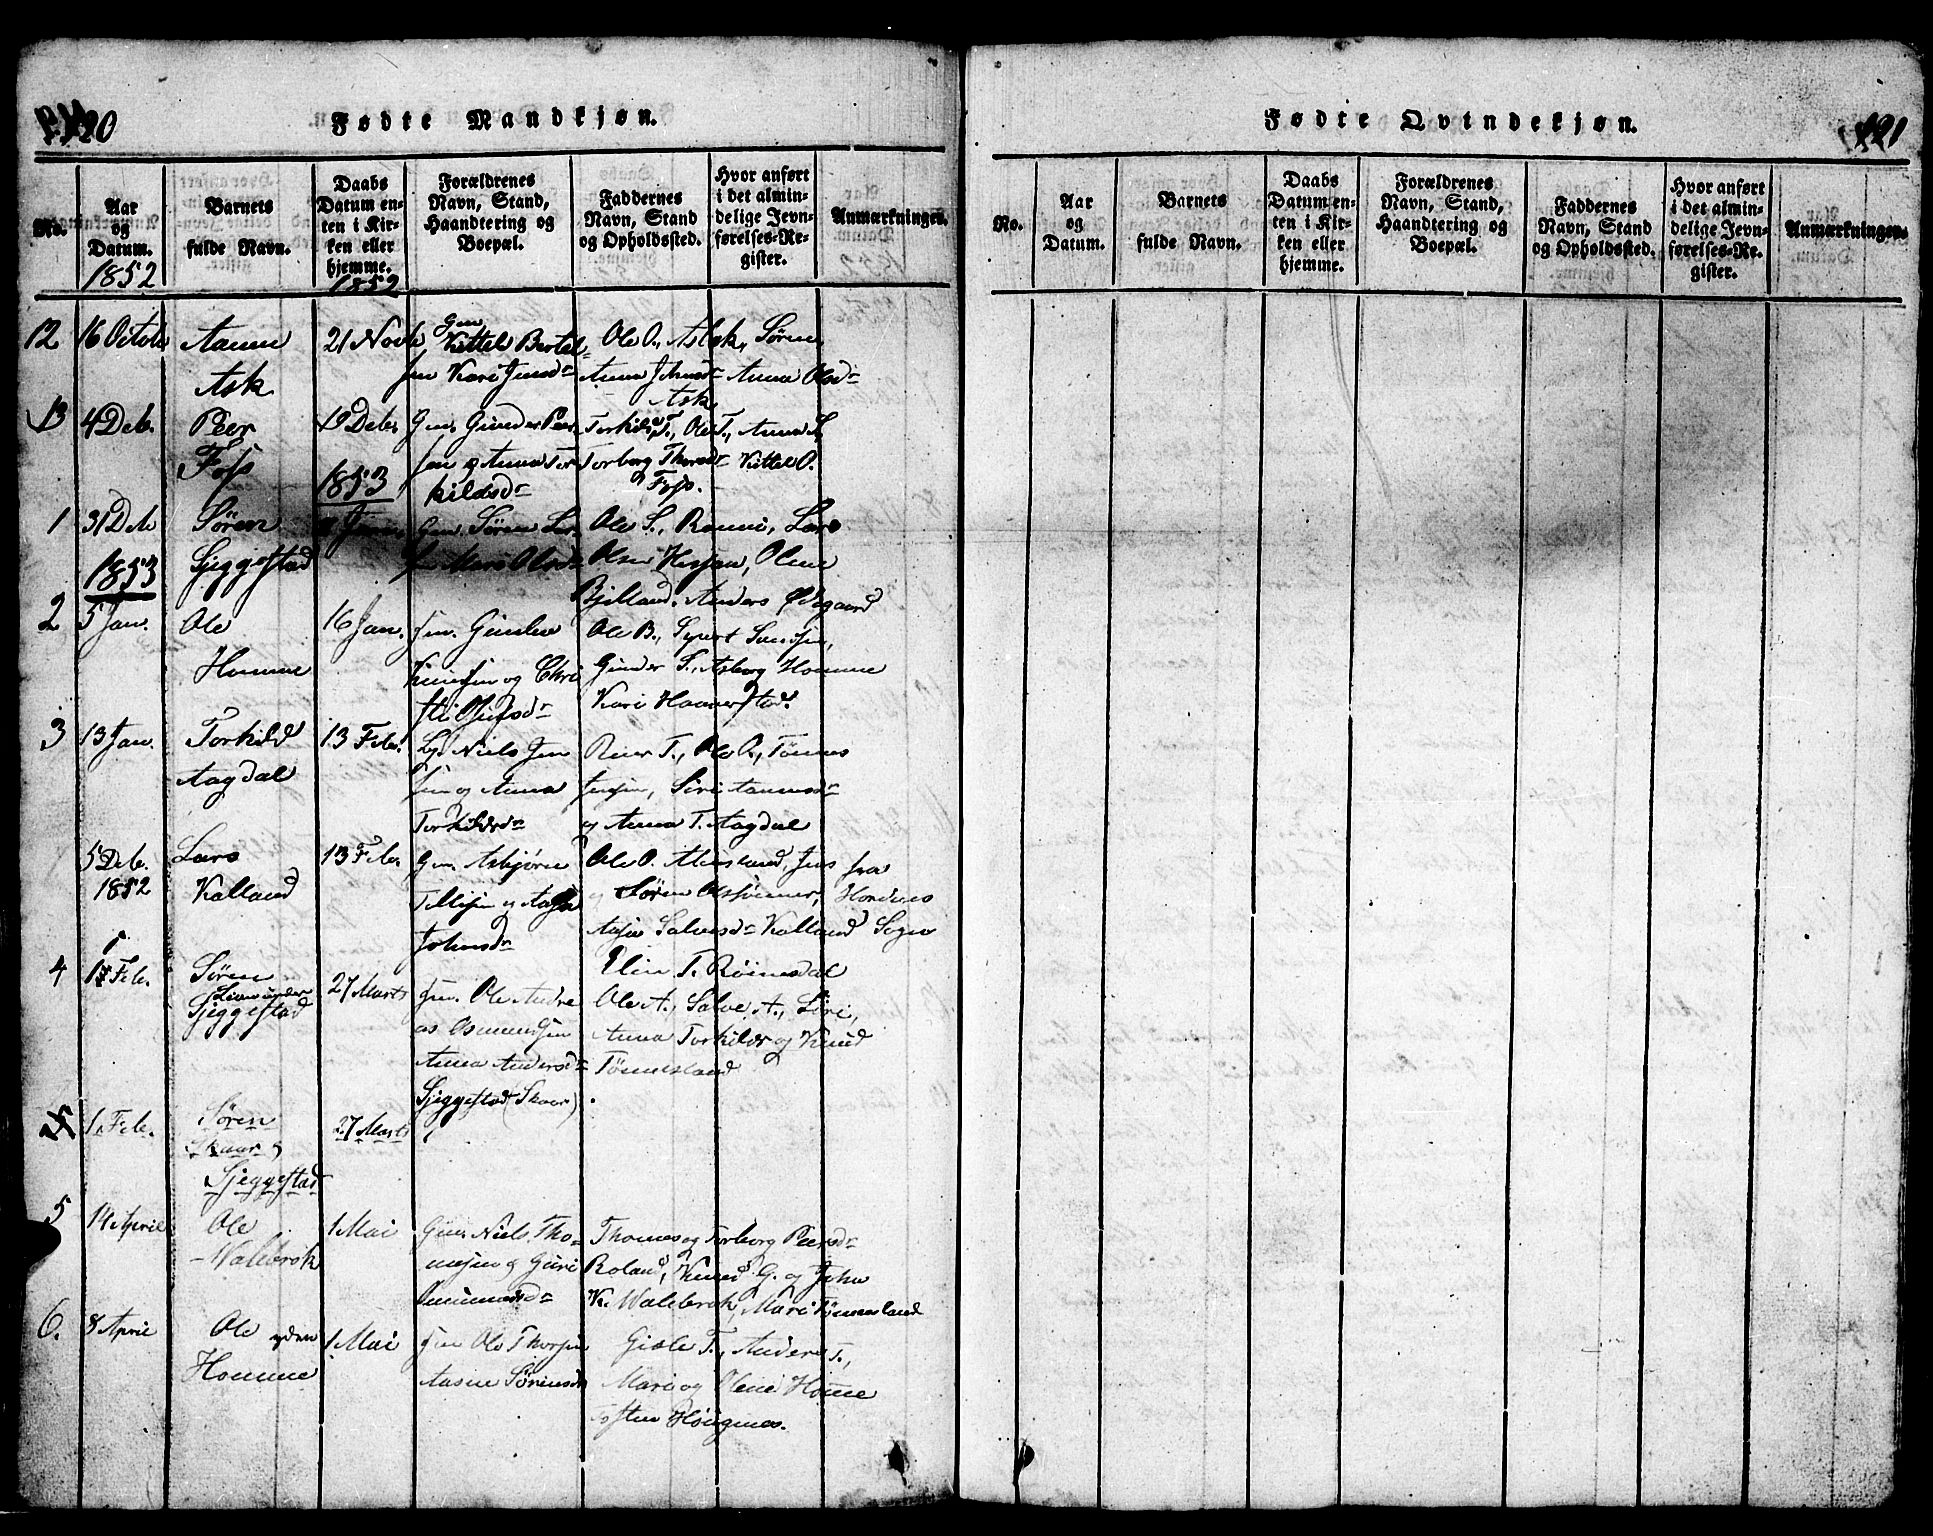 120
Fødte Mandkjøn.
No.
Aar
og
Datum.
1852
Barnets
fulde Navn.
Daabs
Datum en-
ten i Kir-
ken eller
hjemme.
1852
Forældrenes
Navn, Stand,
Haandtering og
Boepæl.
Faddernes
Navn, Stand
og Opholdssted.
Hvor anført
i det almin-
delige Jevn-
førelses-Re-
gister.
Anmærkninger.
12
16 Octob
Aanen
Ask
21 Novb
Gm
Kittel Bertel-
sen Kari Jensdr
Ole O., Aslak, Søren
Anna Johnsdr Anna Olsdr
Ask
13
4 Deb.
Peer
Foss
19 Deb.
Gm. Gunder Peer-
sen og Anna Tor
kildsdr
Torkild T., Ole T., Anna S.
Torborg Thorsdr Kittel O.
Foss.
1853
1
31 Deb
Søren
Sjeggestad
Gm. Søren Lar-
sen Mari Olsd-
Ole S., Ronni, Lars
Olsen Hessaa, Olene
Bjelland, Anders Ødegaard
1853
2
5 Jan.
Ole
Homme
16 Jan.
Gm. Gunder
Knudsen og Chri
sti Olufsdr
Ole B., Syvert
Gunder S., Asborg Homme
Kari Haaverstad
3
13 Jan.
Torkild
Aagdal
13 Feb.
Niels Jen
sen og Anna
Torkildsdr
Reer T., Ole O., Tønnes
Jensen, Siri Aanensdr
og Anna T. Aagdal
5 Deb.
1852
Lars
Kalland
13 Feb.
Gm. Asbjørn
Tellefsen og Aasa
Johnsdr
Ole O. Jens fra
Søren Holdnes
Aasa Salvesdr Kalland Sogn
Elin T. Røinesdal
4
1 Feb.
Søren
Sjeggestad
27 Marts
Gm. Ole Andre
as Osmundsen
Anna Andersd-
Sjeggestad (Skaar)
Ole A., Salve A., Siri,
Anna Torkilds og Knud
Tønnesland
1 Feb.
Søren
Skaar
Sjeggestad
27 Marts
5
14 April
Ole
Wallebrok
1 Mai
Gm. Niels Tho-
mesen og Guri
Thomas og Torborg Peersdr
Roland, Knud G. og John
K. Walebrok, Mari Tønnesland
6.
8 April
Ole yden
Homme
1 Mai
Gm Ole Thorsen
Aasne Sørensd
Gisle T., Anders T.,
Mari og Olene Homme
Høignes.
121
Fødte Qvindekjøn.
No.
Aar
og
Datum.
Barnets
fulde Navn.
Daabs
Datum en-
ten i Kir-
ken eller
hjemme.
Forældrenes
Navn, Stand,
Haandtering og
Boepæl.
Faddernes
Navn, Stand
og Opholdssted.
Hvor anført
i det almin-
delige Jevn-
førelses-Re-
gister.
Anmærkninger.